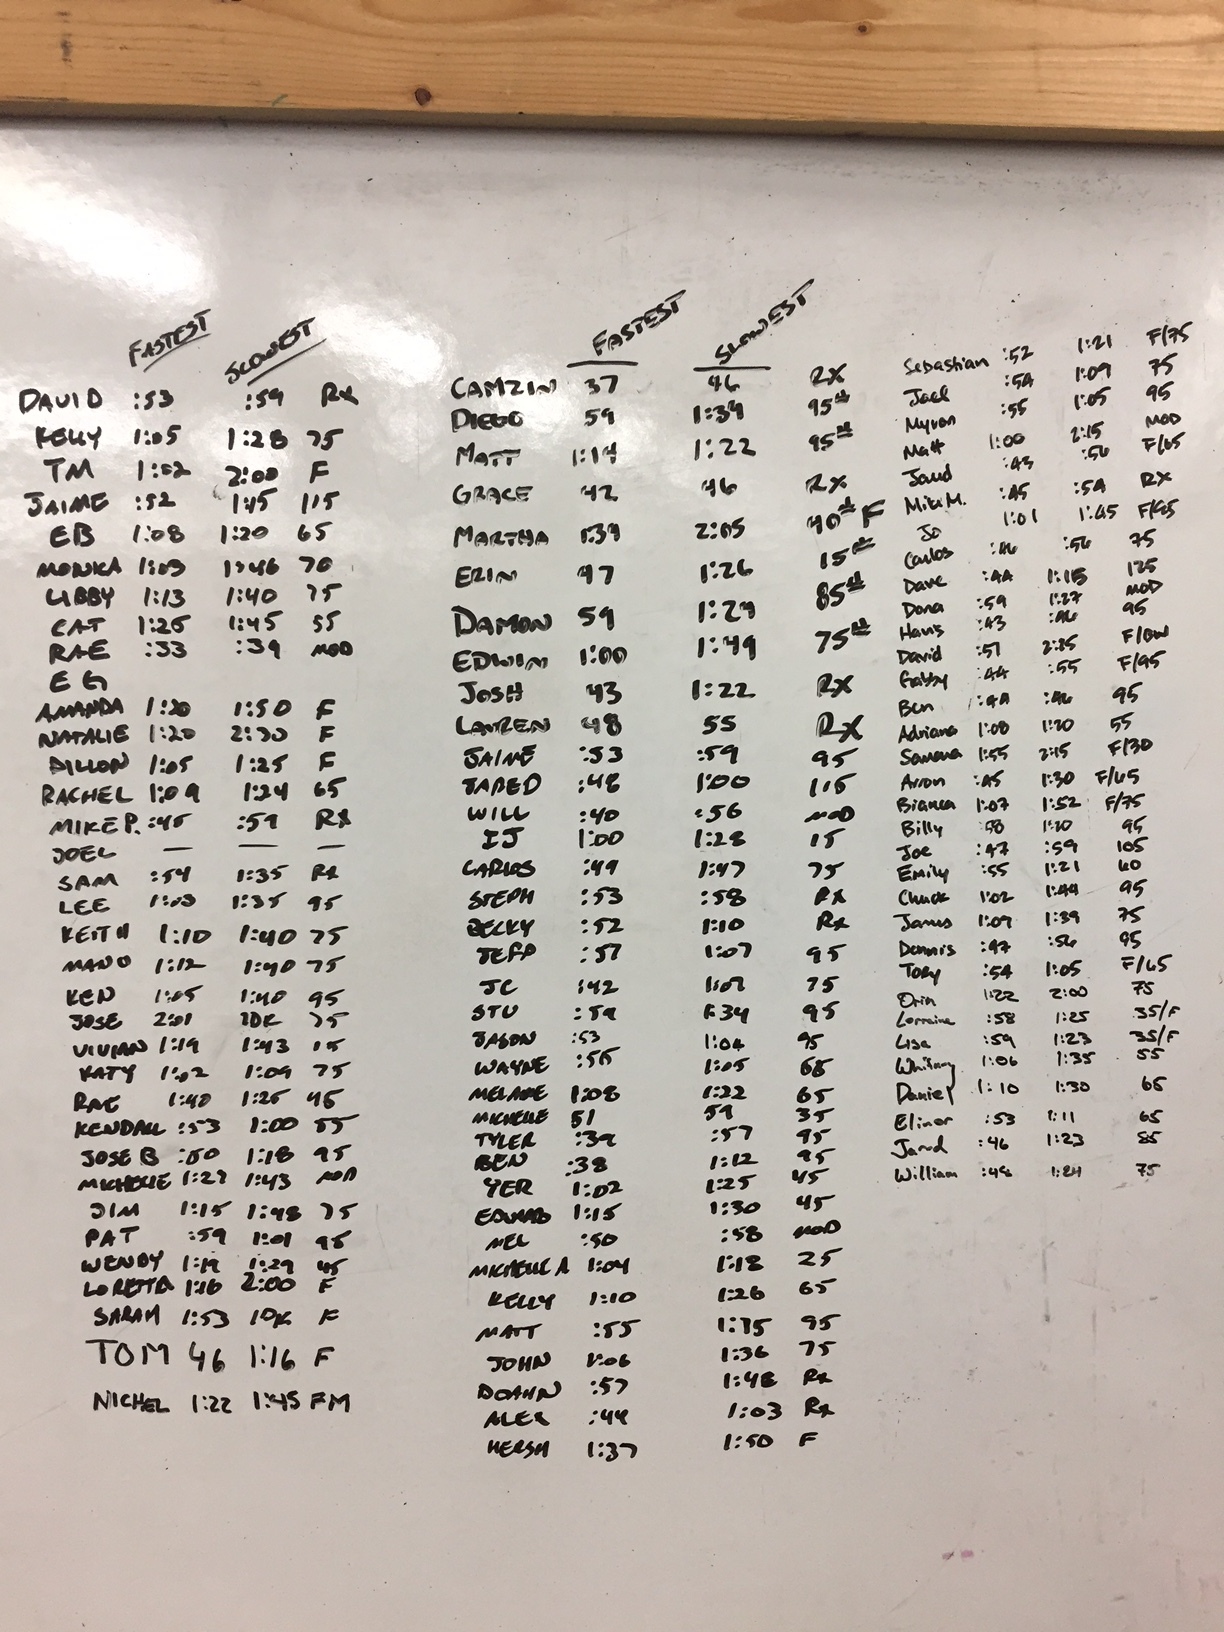 FASTEST SLOWEST
DAVID :53 :59 Rx
KELLY 1:05 1:28 75
TM 1:02 2:00 F
JAIME :52 1:45 115
EB 1:08 1:20 65
MONKA 1:03 1:46 70
LIBBY 1:13 1:40 75
CAT 1:25 1:45 55
RAE :33 :39 MOD
EG
AMANDA 1:20 1:50 F
NATALIE 1:20 2:30 F
DILLON 1:05 1:25 F
RACHEL 1:09 1:24 65
MIKE P. :45 :59 Rx
JOEL — — —
SAM :54 1:35 Rx
LEE 1:03 1:35 95
KEITH 1:10 1:40 75
MANO 1:12 1:40 75
KEN 1:05 1:40 95
JOSE 2:01 75
VIVIAN 1:19 1:43 15
KATY 1:02 1:09 75
RAE 1:40 1:25 45
KENDALL :53 1:00 55
JOSE B :50 1:18 95
MICHELLE 1:27 1:43 MOD
JIM 1:15 1:48 75
PAT :59 1:01 95
WENDY 1:19 1:29 45
LORETTA 1:16 2:00 F
SARAH 1:53 F
TOM 46 1:16 F
NICHEL 1:22 1:45 FM
FASTEST SLOWEST
CAMZIN 37 46 RX
DIEGO 59 1:34 95#
MATT 1:14 1:22 95#
GRACE 42 46 RX
MARTHA 1:34 2:05 40# F
ERIN 47 1:26 15#
DAMON 59 1:29 85#
EDWIN 1:00 1:49 75#
JOSH 43 1:22 RX
LAUREN 48 55 RX
JAIME :53 :59 95
JARED :48 1:00 115
WILL :40 :56 MOD
IJ 1:00 1:28 15
CARLOS :49 1:47 75
STEPH :53 :58 Rx
BECKY :52 1:10 Rx
JEFF :57 1:07 95
JC :42 1:07 75
STU :59 1:34 95
JASON :53 1:04 95
WAYNE :55 1:05 65
MELANIE 1:08 1:22 65
MICHELLE 51 59 35
TYLER :39 :57 95
BEN :38 1:12 95
YER 1:02 1:25 45
EDWARD 1:15 1:30 45
MEL :50 :58 MOD
MICHELLE A 1:04 1:18 25
KELLY 1:10 1:26 65
MATT :55 1:15 95
JOHN 1:06 1:36 75
DOAHN :57 1:48 Rx
ALEX :44 1:03 Rx
HERSH 1:37 1:50 F
Sebastian :52 1:21 F/75
Joel :54 1:09 75
Myron :55 1:05 95
Matt 1:00 2:15 MOD
Jarud :43 :56 F/65
Mike M. :45 :54 RX
Jo 1:01 1:45 F/95
Carlos :46 :56 75
Dave :44 1:15 125
Dana :59 1:27 MOD
Hans :43 :46 95
David :51 F/BW
Gabby :44 :55 F/95
Ben :44 :46 95
Adriana 1:00 1:20 55
1:55 2:15 F/30
Arron :45 1:30 F/65
Bianca 1:07 1:52 F/75
Billy 58 1:20 95
Joe :47 :59 105
Emily :55 1:21
Chuck 1:02 1:44 95
James 1:09 1:39 75
Dennis :47 :56 95
Tory :54 1:05 F/65
Orin 1:22 2:00 75
Lorraine :58 1:25 35/F
Lisa :59 1:23 35/F
Whitney 1:06 1:35 55
Daniel 1:10 1:30 65
Elinor :53 1:11 65
Jarud :46 1:23 85
William :48 1:24 75